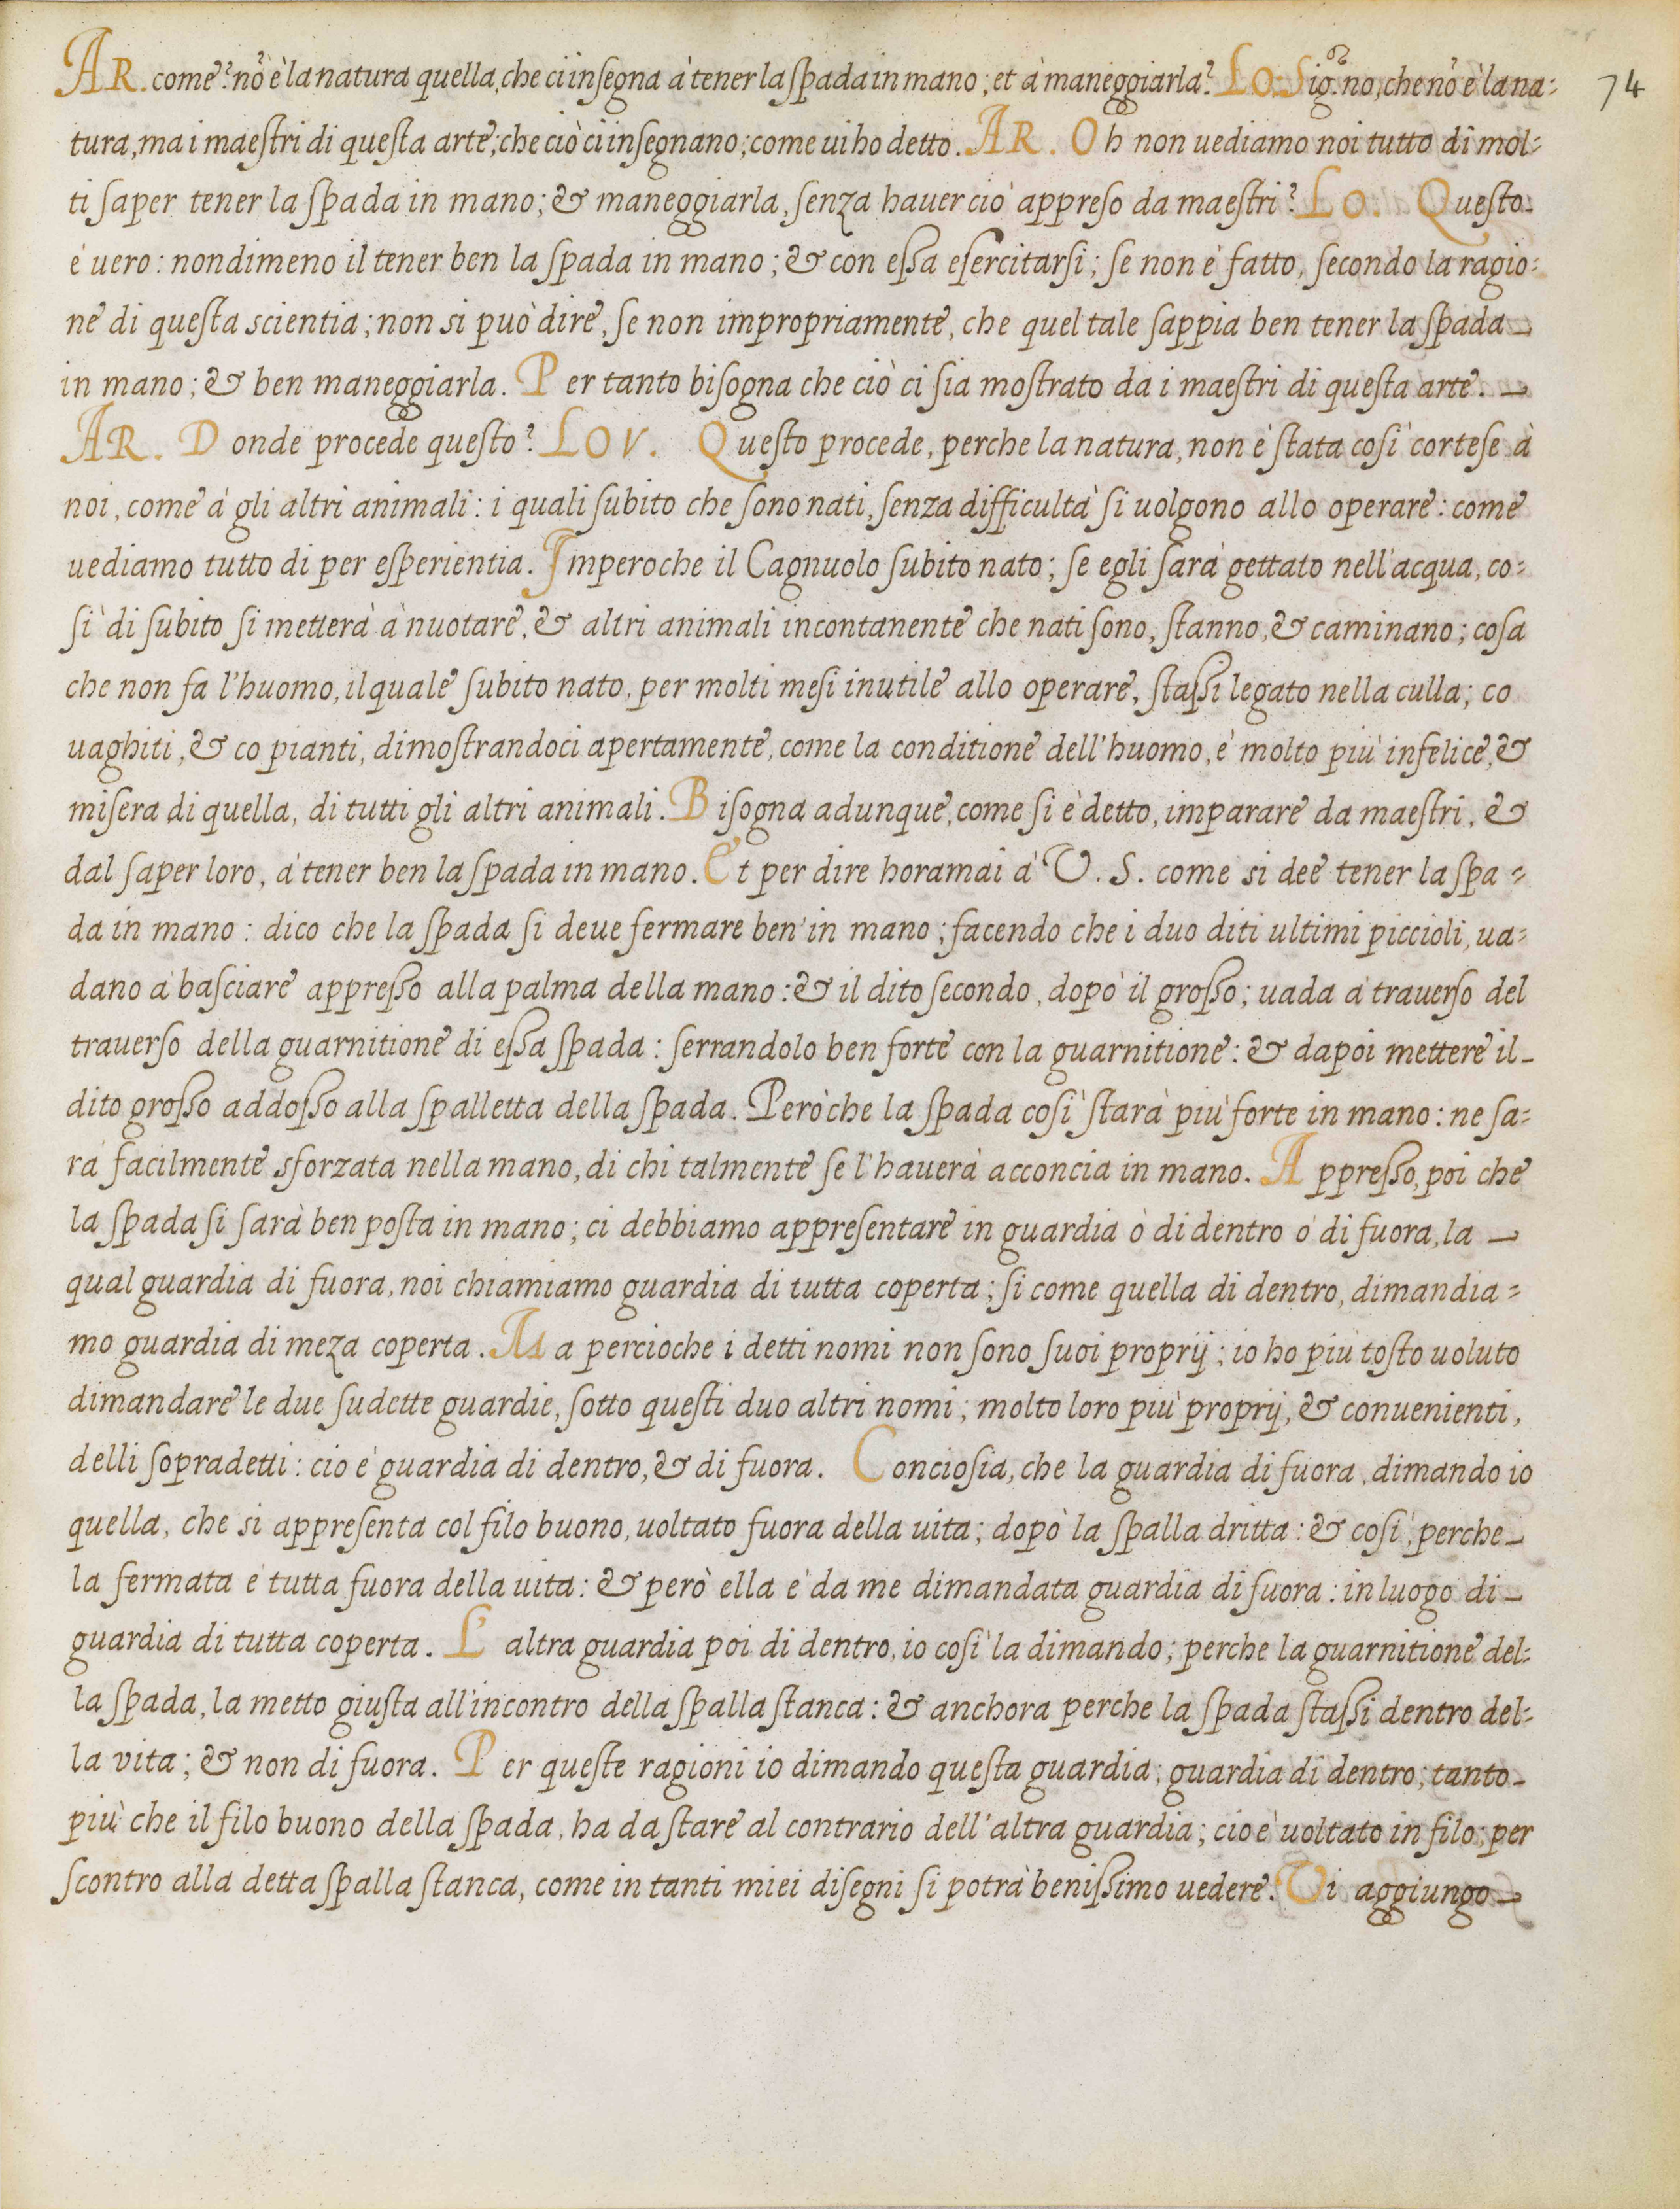 AR. come? nõ è la natura quella, che ci insegna à tener la spada in mano; et à maneggiarla? LO. Sig.^re no, che nõ è la na=
74
tura, ma i maestri di questa arte; che ciò ci insegnano; come vi ho detto. AR. Oh non uediamo noi tutto dì mol=
ti saper tener la spada in mano; & maneggiarla, senza hauer ciò appreso da maestri? LO. Questo
è uero: nondimeno il tener ben la spada in mano; & con essa esercitarsi; se non è fatto, secondo la ragio=
ne di questa scientia; non si può dire, se non impropriamente, che quel tale sappia ben tener la spada
in mano; & ben maneggiarla. Per tanto bisogna che ciò ci sia mostrato da i maestri di questa arte.
AR. Donde procede questo? LOV. Questo procede, perche la natura, non è stata così cortese à
noi, come à gli altri animali: i quali subito che sono nati, senza difficultà si uolgono allo operare: come
uediamo tutto di per esperientia. Imperoche il Cagnuolo subito nato; se egli sarà gettato nell'acqua, co=
sì di subito si metterà à nuotare, & altri animali incontanente che nati sono, stanno, & caminano; cosa
che non fa l'huomo, il quale subito nato, per molti mesi inutile allo operare, stassi legato nella culla; co
uaghiti, & co pianti, dimostrandoci apertamente, come la conditione dell'huomo, è molto più infelice, &
misera di quella, di tutti gli altri animali. Bisogna adunque, come si è detto, imparare da maestri, &
dal saper loro, à tener ben la spada in mano. Et per dire horamai à V. S. come si dee tener la spa=
da in mano: dico che la spada si deue fermare ben' in mano; facendo che i duo diti ultimi piccioli, ua=
dano à basciare appresso alla palma della mano: & il dito secondo, dopò il grosso; uada à trauerso del
trauerso della guarnitione di essa spada: serrandolo ben forte con la guarnitione: & dapoi mettere il
dito grosso addosso alla spalletta della spada. Peròche la spada così starà più forte in mano: ne sa=
rà facilmente sforzata nella mano, di chi talmente se l'hauerà acconcia in mano. Appresso, poi che
la spada si sarà ben posta in mano; ci debbiamo appresentare in guardia ò di dentro ò di fuora, la
qual guardia di fuora, noi chiamiamo guardia di tutta coperta; si come quella di dentro, dimandia=
mo guardia di meza coperta. Ma percioche i detti nomi non sono suoi proprij; io ho più tosto uoluto
dimandare le due sudette guardie, sotto questi duo altri nomi; molto loro più proprij, & conuenienti,
delli sopradetti: cio è guardia di dentro, & di fuora. Conciosia, che la guardia di fuora, dimando io
quella, che si appresenta col filo buono, uoltato fuora della uita; dopò la spalla dritta: & così, perche
la fermata è tutta fuora della uita: & però ella è da me dimandata guardia di fuora: in luogo di
guardia di tutta coperta. L'altra guardia poi di dentro, io così la dimando; perche la guarnitione del=
la spada, la metto giusta all'incontro della spalla stanca: & anchora perche la spada stassi dentro del=
la vita; & non di fuora. Per queste ragioni io dimando questa guardia; guardia di dentro; tanto
più che il filo buono della spada, ha da stare al contrario dell'altra guardia; cioè uoltato in filo, per
scontro alla detta spalla stanca, come in tanti miei disegni si potrà benissimo uedere. Vi aggiungo